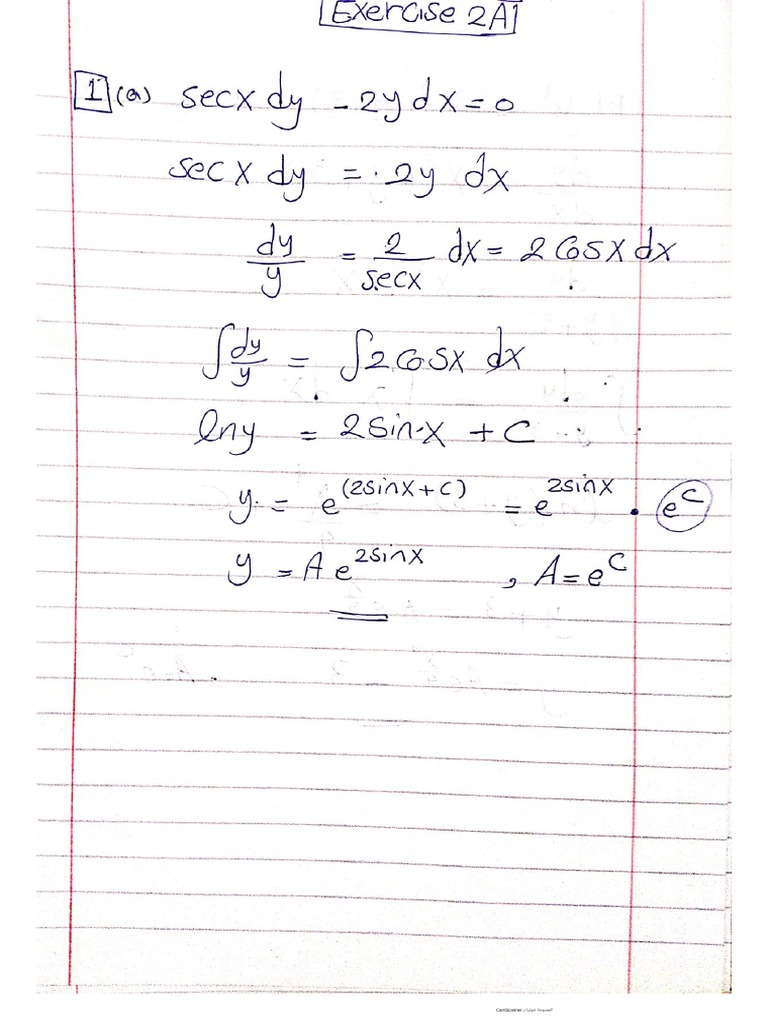 Exercise 2A
1 (a) secx dy - 2y dx = 0
secx dy = 2y dx
dy/y = 2/secx dx = 2 cosx dx
∫ dy/y = ∫ 2 cosx dx
lny = 2 sin x + C
y = e^(2sinx+c) = e^2sinx . e^c
y = A e^2sinx , A = e^c
CamScanner